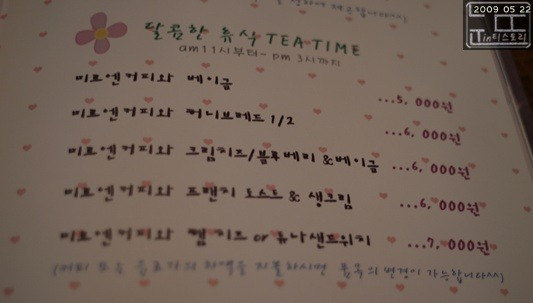 2009 05 22
in티스토리
달콤한 휴식 TEA TIME
am 11시부터~ pm 3시까지
미르엔커피와 베이글 ...5,000원
미르엔커피와 허니브레드 1/2 ...6,000원
미르엔커피와 크림치즈/블루베리 &베이글 ...6,000원
미르엔커피와 프렌치 토스트 & 생크림 ...6,000원
미르엔커피와 햄치즈 or 튜나샌드위치 ...7,000원
(커피 또는 음료가의 차액을 지불하시면 음료의 변경이 가능합니다^^)